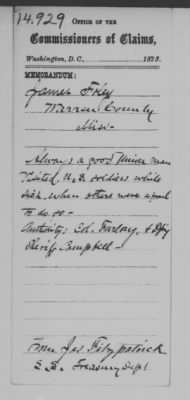 14.929
OFFICE OF THE
Commissioners of Claims,
Washington, D. C., 1873.
MEMORANDUM:
James Foley
Warren County
Miss.
Always a good Union man
Visited U.S. soldiers while
sick, when others were afraid
to do so —
Authority: Col. Furlong, & Dpty
Sheriff Campbell —
From Jas Fitzpatrick
Treasury Dept